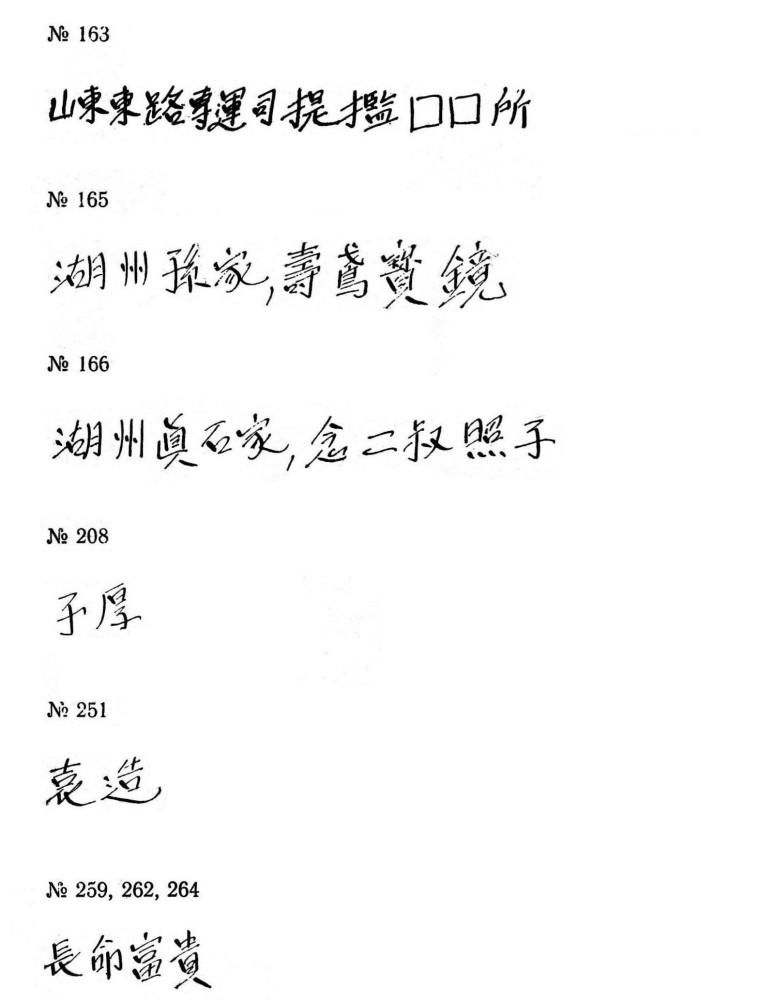 № 163
山東東路專運司提攬囗囗所
№ 165
湖州孫家,壽鳶寳鏡
№ 166
湖州眞石家,念二叔照子
№ 208
子厚
№ 251
袁造
№ 259, 262, 264
長命富貴